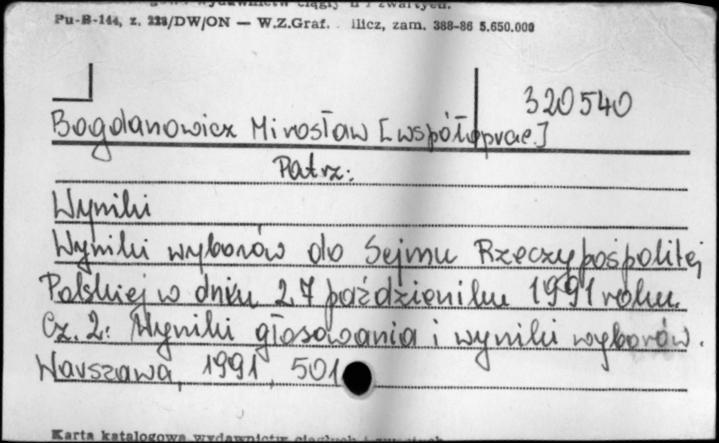 Pu-B-144, z. 228/DW/ON — W.Z.Graf. ilicz, zam. 388-86 5.650.000
320540
Bogdanowicz Mirosław [współoprac.]
Patrz:
Wyniki
Wyniki wyborów do Sejmu Rzeczypospolitej
Polskiej w dniu 27 października 1991 roku.
Cz. 2: Wyniki głosowania i wyniki wyborów.
Warszawa, 1991, 501
Karta katalogowa wydawnictw ciągłych i zwartych